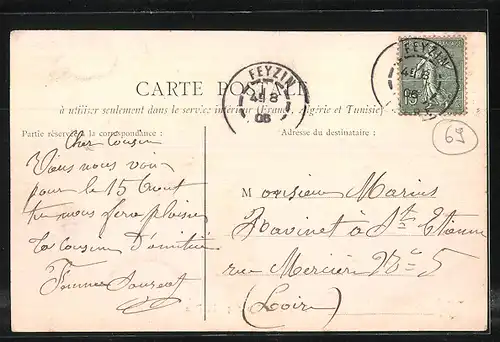 CARTE POSTALE
à utiliser seulement dans le service intérieur (France, Algérie et Tunisie)
Partie réservée à la correspondance :
Adresse du destinataire :
FEYZIN
8
06
FEYZIN
8
06
15
69
Cher Cousin
Vous nous
pour le 15 Aout
tu nous fera plaisir
ta cousine D'amitié
Monsieur Marius
Ravinet à St Etienne
rue Mercière No 5
(Loire)